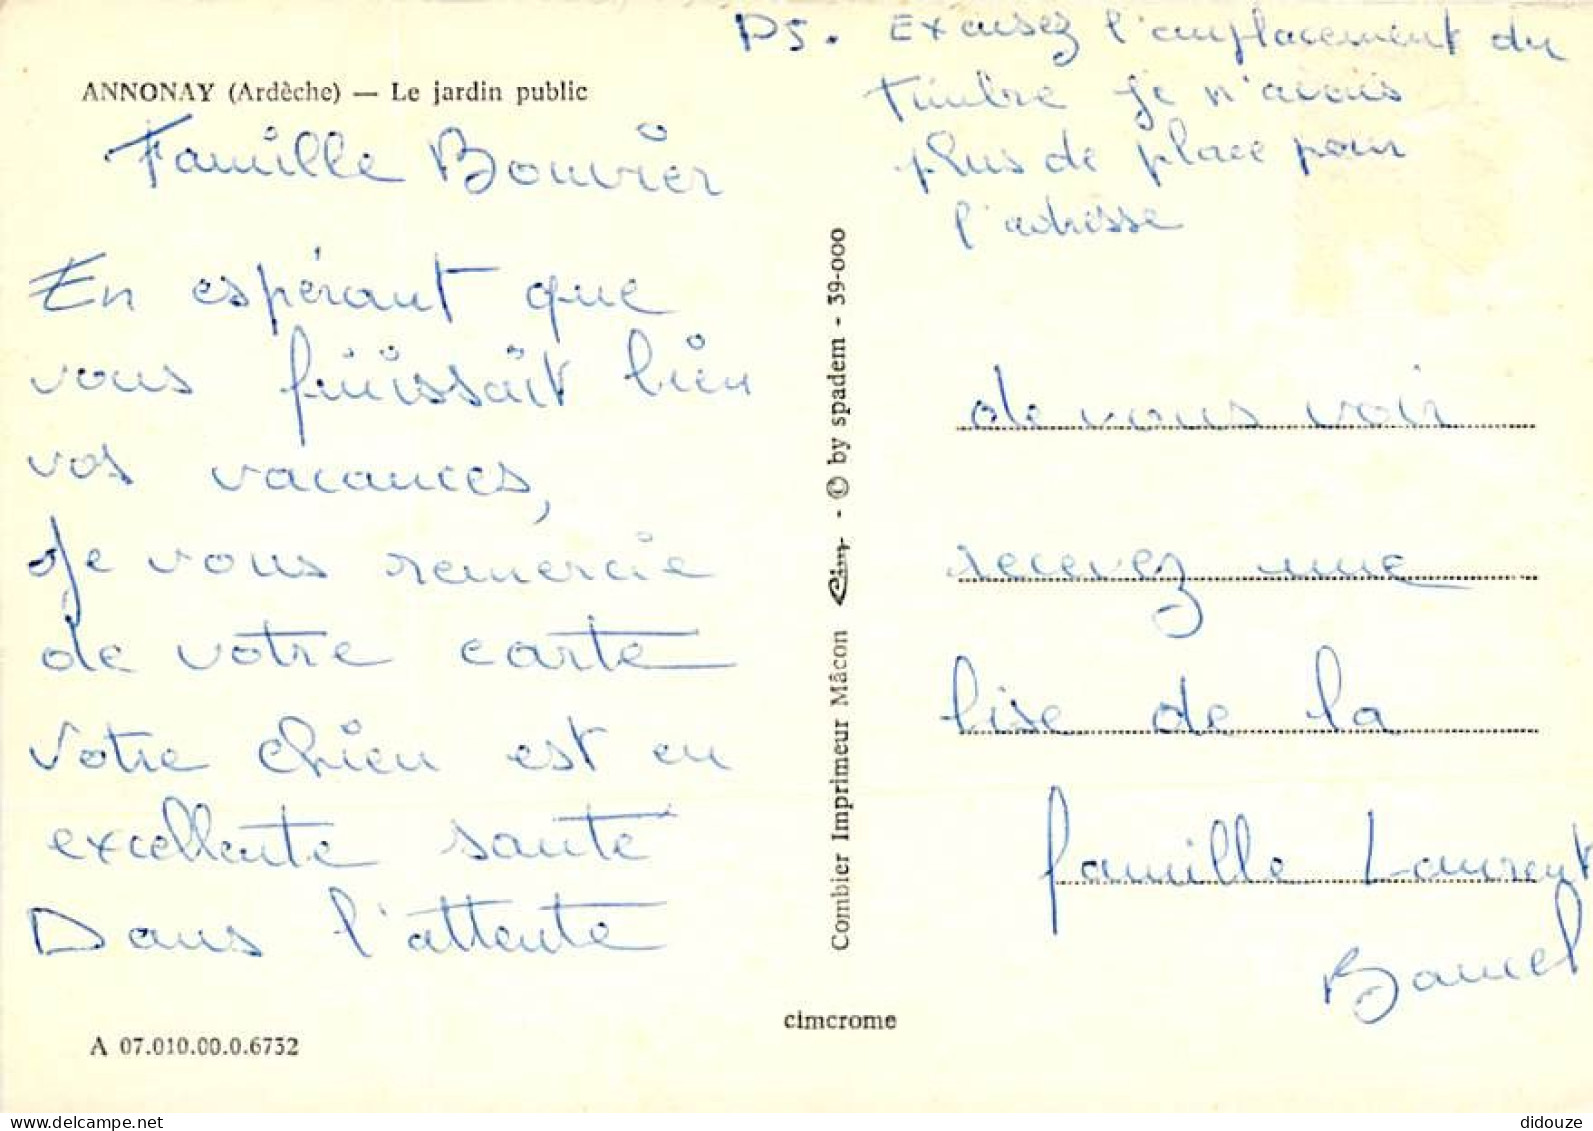 ANNONAY (Ardèche) — Le jardin public
Famille Bouvier
En espérant que
vous finissait bien
vos vacances,
Je vous remercie
de votre carte
Votre chien est en
excellente santé
Dans l'attente
A 07.010.00.0.6732
Combier Imprimeur Mâcon Cim - © by spadem - 39-000
cimcrome
PS. Excusez l'amplacement du
timbre je n'avais
plus de place pour
l'adresse
de vous voir
recevez une
bise de la
famille Laurent
delcampe.net
didouze